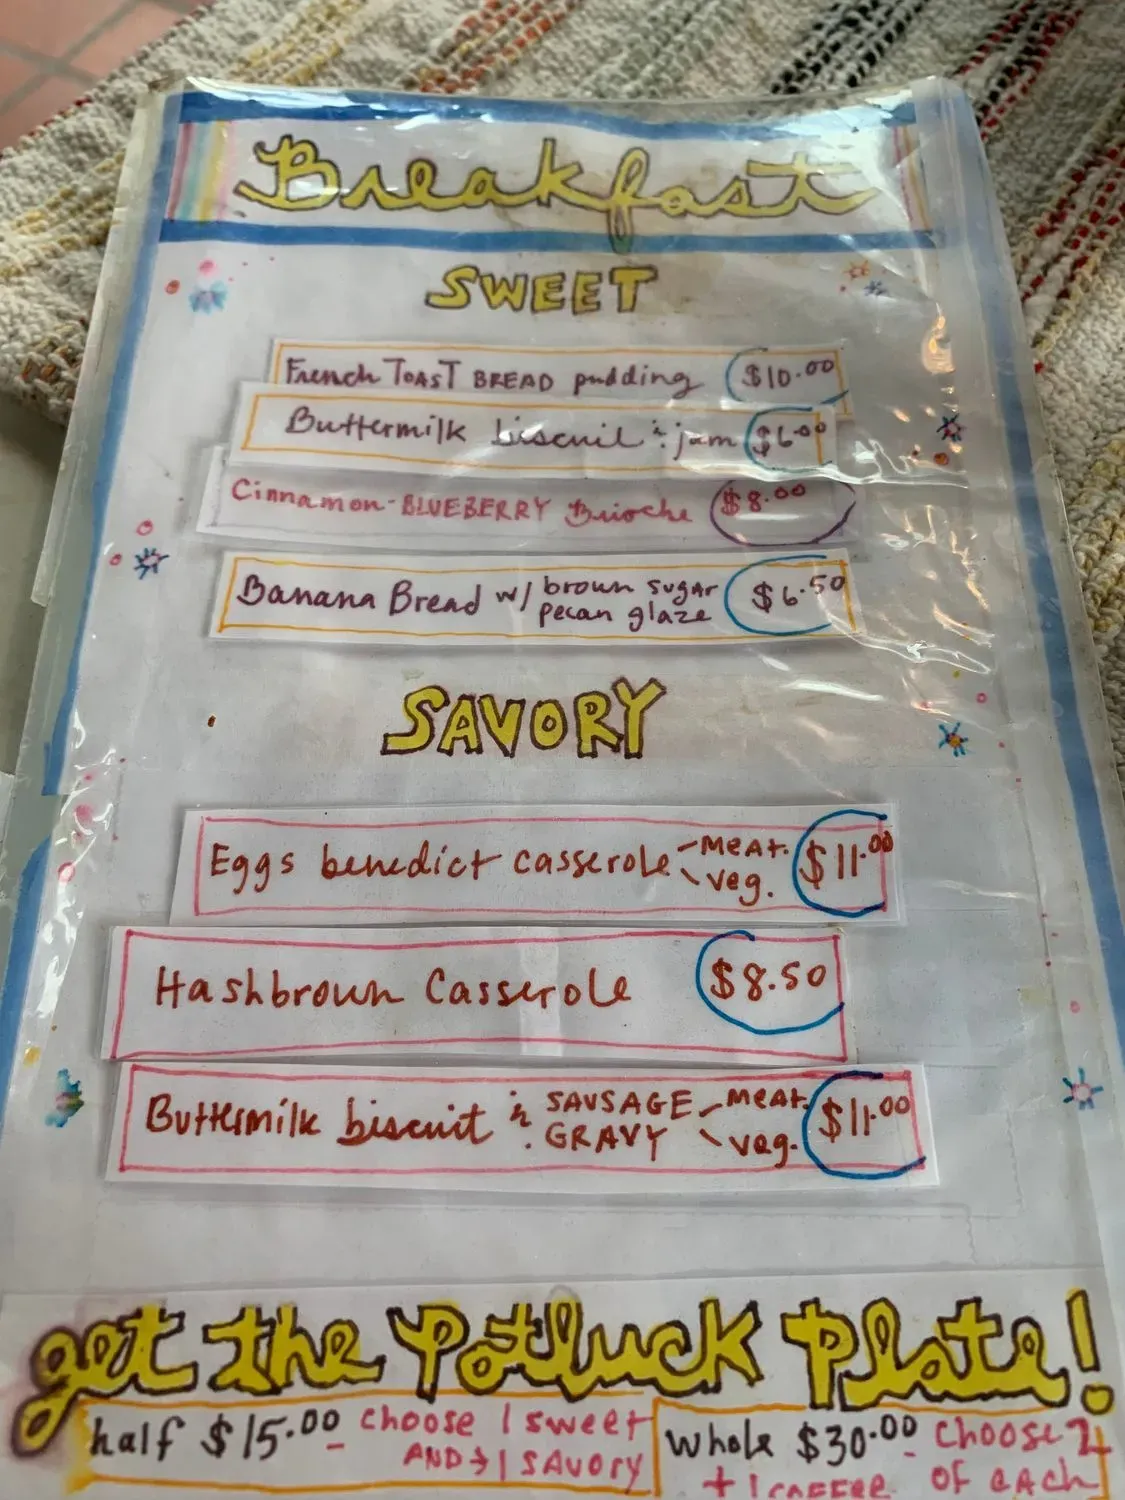 Breakfast
SWEET
French TOAST BREAD pudding $10.00
Buttermilk biscuit & jam $6.00
Cinnamon-BLUEBERRY Brioche $8.00
Banana Bread w/ brown sugar
pecan glaze $6.50
SAVORY
Eggs benedict casserole - MEAT. $11.00
- veg.
Hashbrown Casserole $8.50
Buttermilk biscuit & SAUSAGE - MEAT. $11.00
GRAVY - veg.
get the Potluck Plate!
half $15.00 - choose 1 sweet
AND → 1 SAVORY
whole $30.00 - choose 2
of each
+ 1 COFFEE